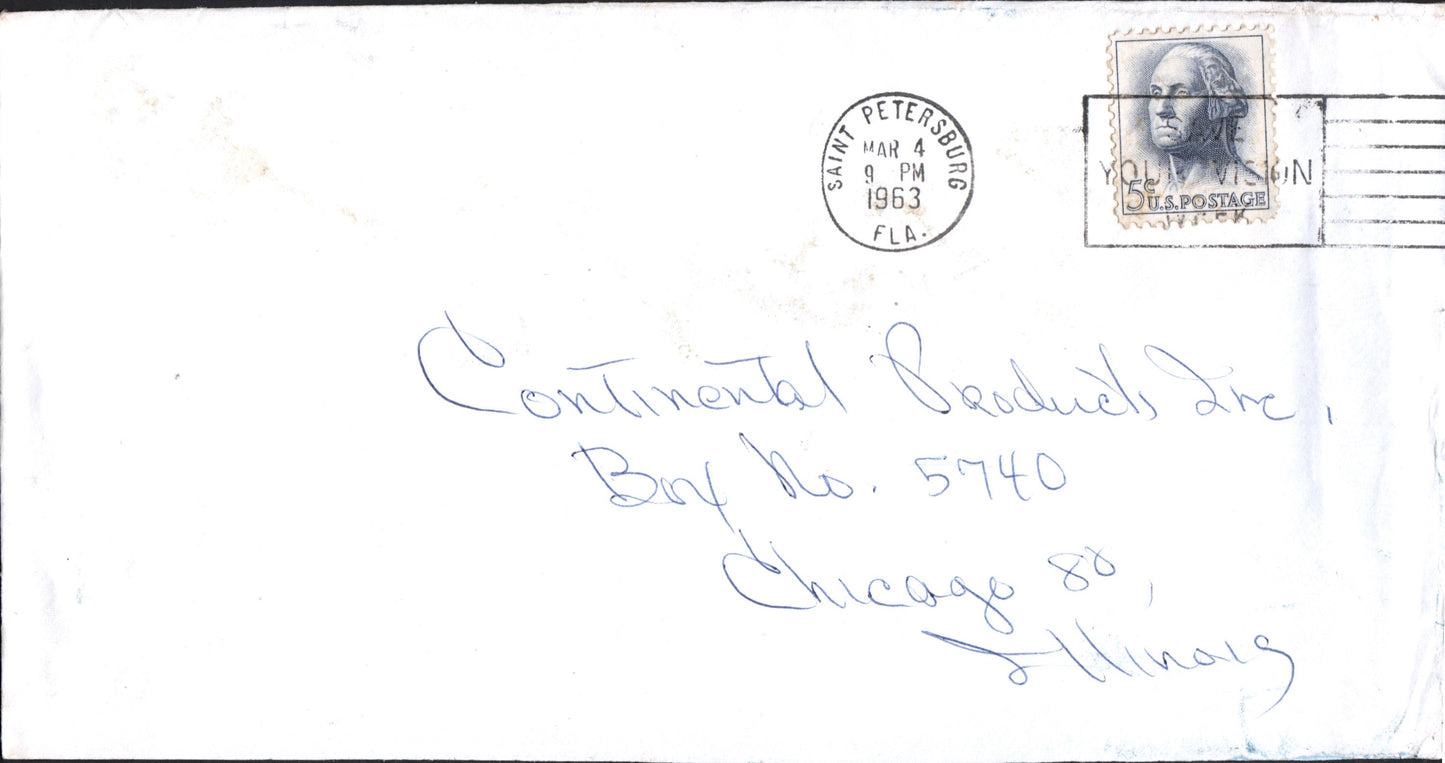 SAINT PETERSBURG
MAR 4
9 PM
1963
FLA.
YOUR VISION
WEEK
5c U.S. POSTAGE
Continental Products Inc,
Box No. 5740
Chicago 80,
Illinois